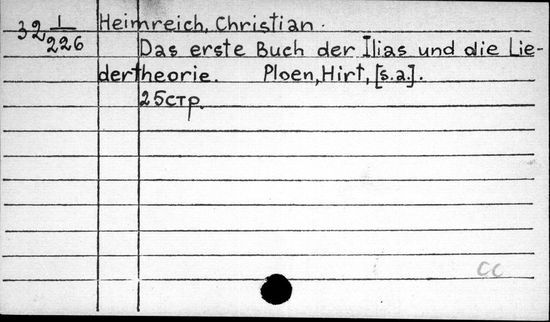 32 1/226 Heimreich, Christian.
Das erste Buch der Ilias und die Lie-
dertheorie. Ploen, Hirt, [s.a.].
25стр.
CC